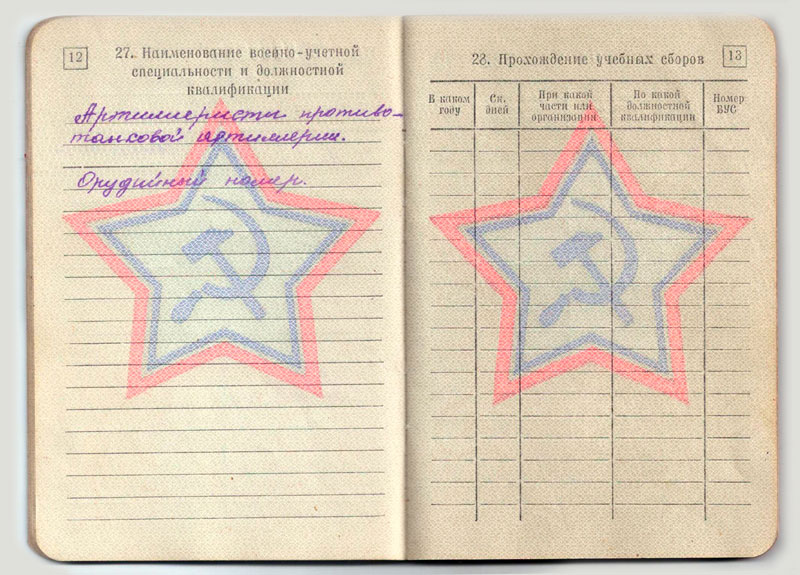 12
27. Наименование военно-учетной
специальности и должностной
квалификации
Артиллеристы противо-
танковой артиллерии.
Орудийный номер.
28. Прохождение учебных сборов
13
В каком
году
Ск.
дней
При какой
части или
организации
По какой
должностной
квалификации
Номер
ВУС